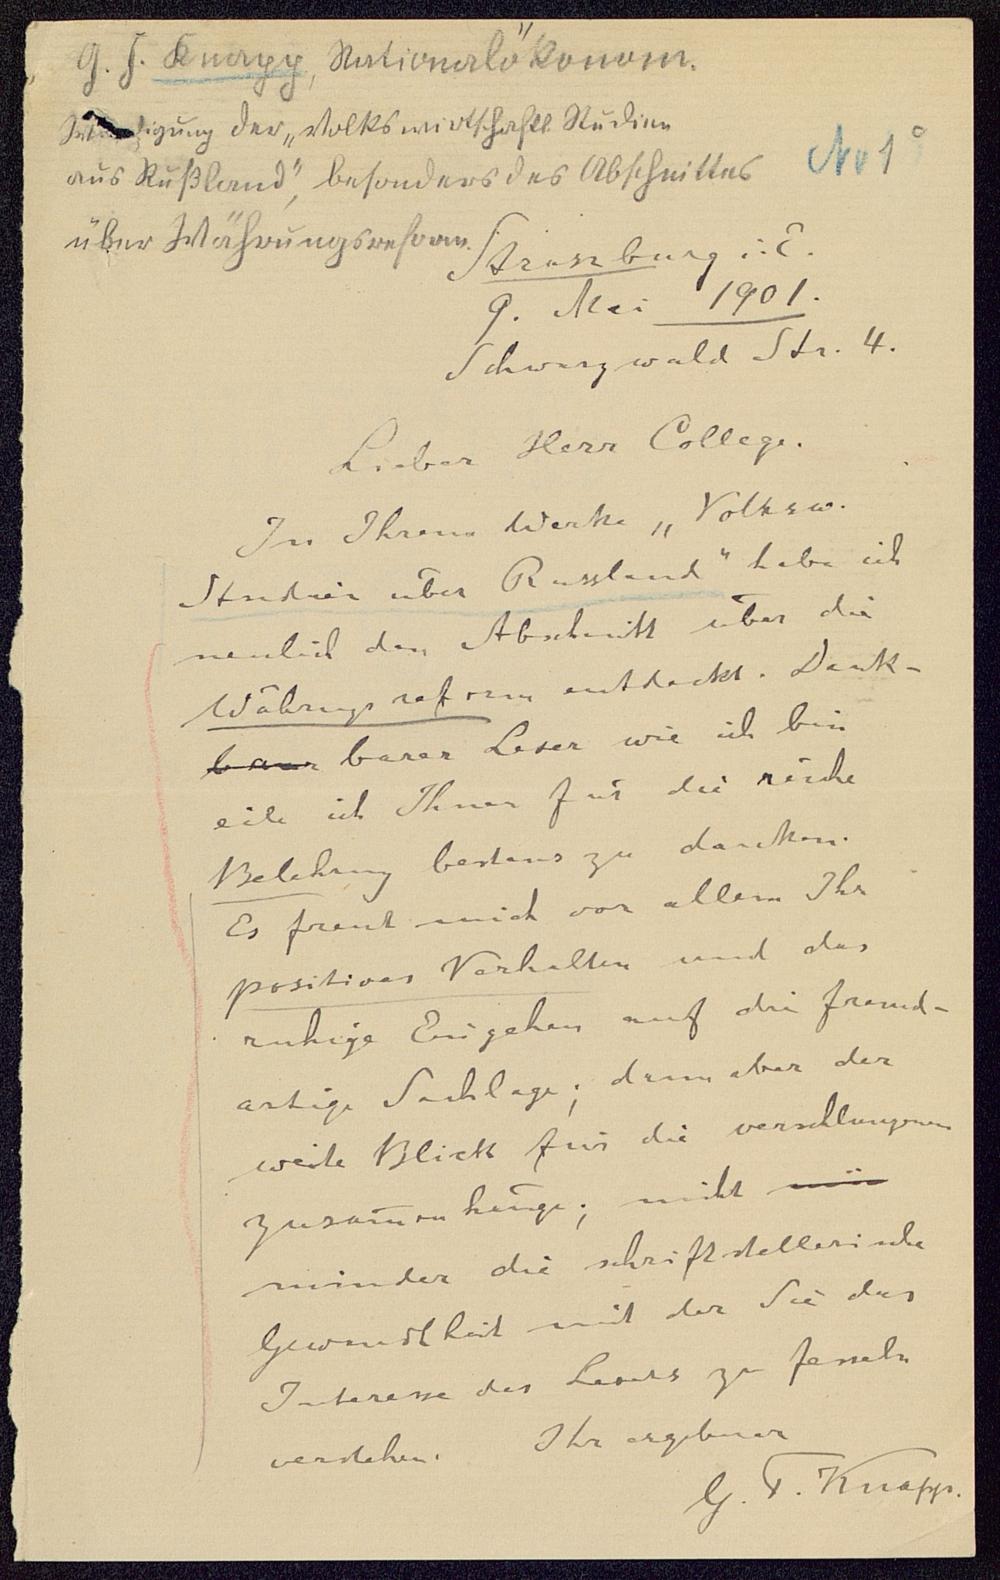 G. F. Knapp, Nationalökonom.
Würdigung der „Volkswirtschaftl. Studien
aus Rußland", besonders des Abschnittes
über Währungsreform.
No 1
Straszburg i. E.
9. Mai 1901.
Schwarzwald Str. 4.
Lieber Herr College.
In Ihrem Werke „Volksw.
Studien über Russland" habe ich
neulich den Abschnitt über die
Währungsreform entdeckt. Dank-
barer Leser wie ich bin
eile ich Ihnen für die reiche
Belehrung bestens zu danken.
Es freut mich vor allem Ihr
positives Verhalten und das
ruhige Eingehen auf die fremd-
artige Sachlage; dann aber der
weite Blick für die verschlungenen
Zusammenhänge; nicht
minder die schriftstellerische
Gewandtheit mit der Sie das
Interesse des Lesers zu fesseln
verstehen. Ihr ergebener
G. F. Knapp.